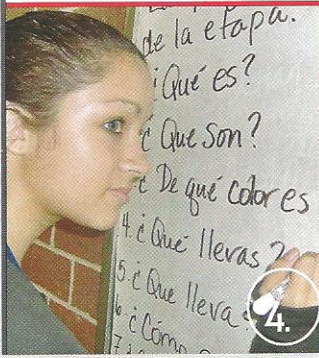 de la etapa.
¿Qué es?
¿Que son?
¿De qué colores
4. ¿Qué llevas?
5. ¿Que lleva
6. ¿Cómo
7. ¿
4.